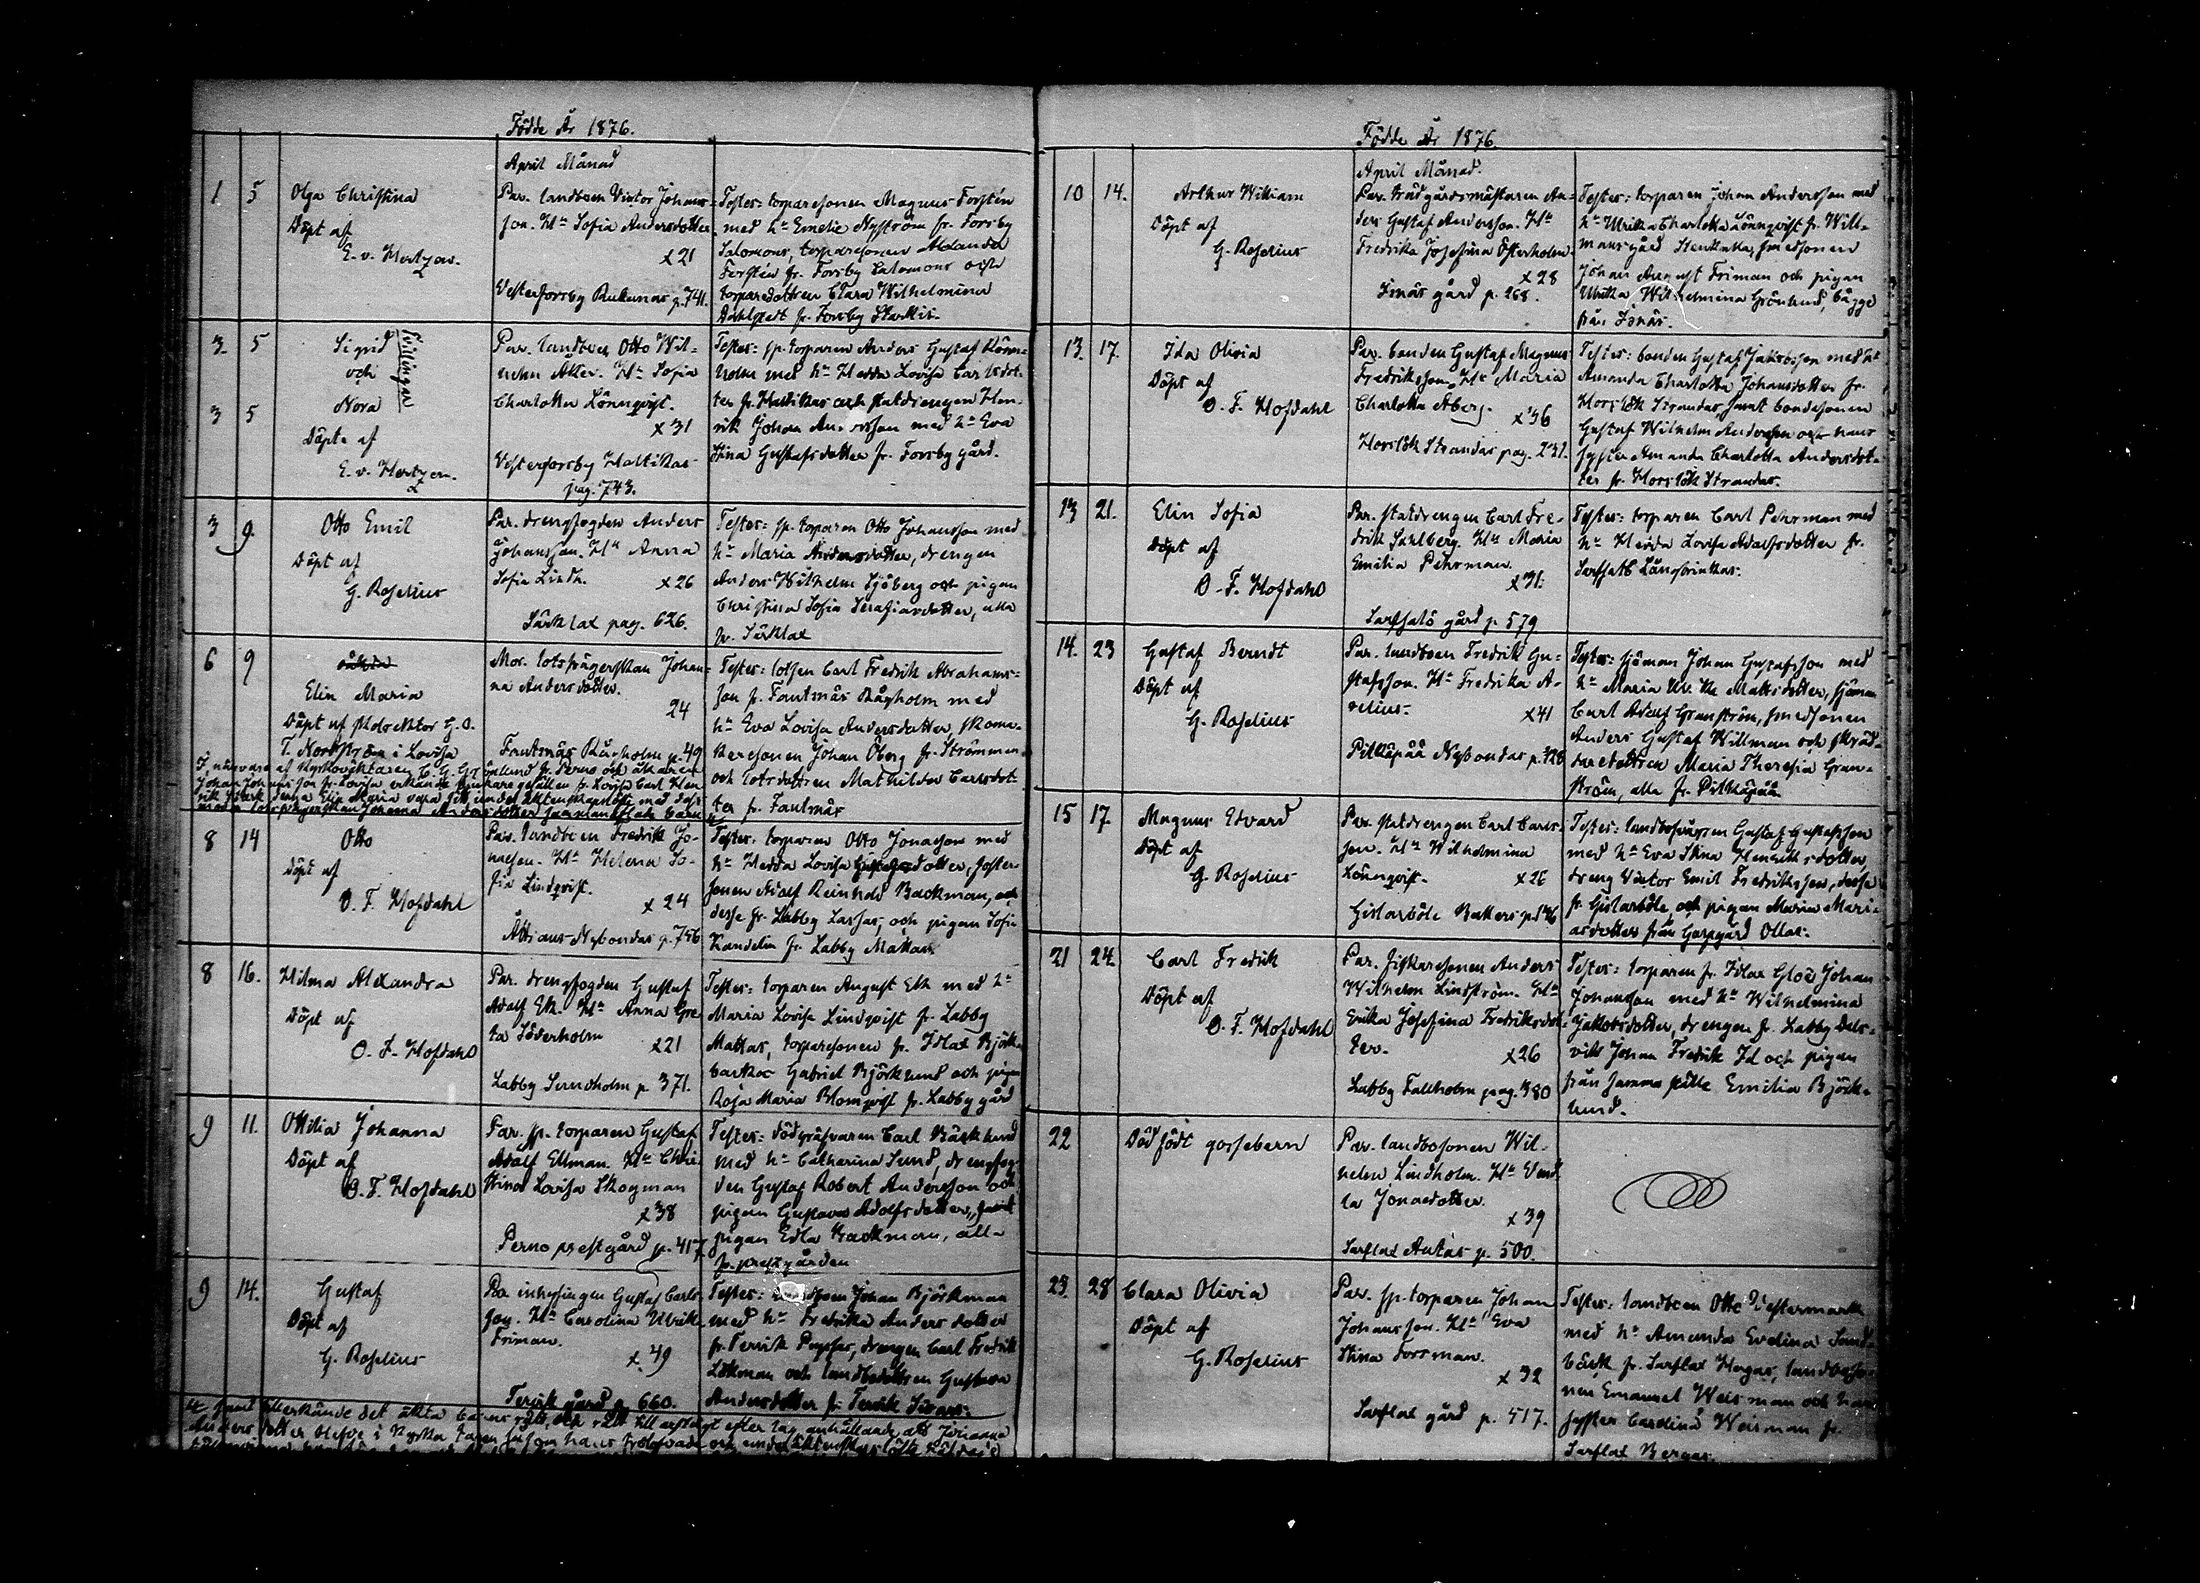 Födde År 1876.
April Månad
1 5 Olga Christina
Döpt af
E. v. Hertzen.
Par. landboen Victor Johans-
son. H:u Sofia Andersdotter
x 21
Vesterforsby Rukunas p. 741.
Testes: torparesonen Magnus Forstén
med h:u Emelie Nyström fr. Forsby
Salomons, torparesonen
Forstén fr. Forsby Salomons och
torparedottren Clara Wilhelmina
Dahlqvist fr. Forsby Starkis.
3. 5 Sigrid
och
3 5 Nora
Tvillingar
Döpte af
E. v. Hertzen.
Par. landboen Otto Wil-
helm Alter. H:u Sofia
Charlotta Lönnqvist.
x 31
Vesterforsby Hallikas
pag. 743.
Testes: sp. torparen Anders Gustaf Rönn-
holm med h:u Hedda Lovisa Carlsdot-
ter fr. Hallikas och statdrengen Hen-
rik Johan Andersson med h:u Eva
Stina Gustafsdotter fr. Forsby gård.
3 9. Otto Emil
Döpt af
G. Roselius
Par. drengfogden Anders
Johansson. H:u Anna
Sofia Lindh. x 26
Särklax pag. 626.
Testes: sp. torparen Otto Johansson med
h:u Maria Andersdotter, drengen
Anders Wilhelm Sjöberg och pigan
Christina Sofia Serafiasdotter, alla
fr. Särklax
6 9
Elin Maria
Döpt af Rektor G. O.
T. Nordström i Lovisa
Mor. lotsfrägerskan Johan-
na Andersdotter.
24
Fantsnäs Rågholm p. 49
Testes: lotsen Carl Fredrik Abrahams-
son fr. Fantsnäs Rågholm med
h:u Eva Lovisa Andersdotter, skoma-
karesonen Johan Öberg fr. Strömmen
och lotsdottren Mathilda Carlsdot-
ter fr. Fantsnäs
I närvaro af Kyrkoväktaren C. G. Grönlund fr. Perno och
Johan Johansson fr. Lovisa erkände fr. Lovisa Carl Hen-
rik denna Elin Maria vara sitt under äktenskapslöfte med
Johanna Andersdotter
8 14 Otto
döpt af
O. F. Hofdahl
Par. landboen Fredrik Jo-
nasson. H:u Helena So-
fia Lindqvist.
x 24
Nybondas p. 756
Testes: torparen Otto Jonasson med
h:u Hedda Lovisa Gustafsdotter, foster-
sonen Adolf Reinhold Backman, och
desse fr. Labby Lassas, och pigan Sofia
Kandelin fr. Labby Mattas
8 16. Hilma Alexandra
Döpt af
O. F. Hofdahl
Par. drengfogden Gustaf
Adolf Ek. H:u Anna Gre-
ta Söderholm
x 21
Labby Sundholm p. 371.
Testes: torparen August Ek med h:u
Maria Lovisa Lindqvist fr. Labby
Mattas, torparesonen fr. Idlax Björk-
backas Gabriel Björklund och pigan
Rosa Maria Blomqvist fr. Labby gård
9 11. Ottilia Johanna
Döpt af
O. F. Hofdahl
Par. sp. torparen Gustaf
Adolf Ellman. H:u Chri-
stina Lovisa Skogman
x 38
Perno prestgård p. 417
Testes: dödgräfvaren Carl Bäcklund
med h:u Catharina Lund, drengfog-
den Gustaf Robert Andersson och
pigan Gustava Adolfsdotter, samt
pigan Edla Backman, alla
fr. prestgården
9 14. Gustaf
Döpt af
G. Roselius
Par. inhysingen Gustaf Carls-
son. H:u Carolina Ulrika
Friman.
x 49
Tervik gård p. 660.
Testes: landboen Johan Björkman
med h:u Fredrika Andersdotter
fr. Tervik, drengen Carl Fredrik
Lökman och landbodottren Gustava
Andersdotter fr. Tervik
Födde År 1876.
April Månad.
10 14. Arthur William
Döpt af
G. Roselius
Par. trädgårdsmästaren An-
ders Gustaf Andersson. H:u
Fredrika Josefina Österholm.
x 28
Isnäs gård p. 268.
Testes: torparen Johan Andersson med
h:u Ulrika Charlotta Lönnqvist fr. Will-
mansgård Stenkulla, smedsonen
Johan August Friman och pigan
Ulrika Wilhelmina Grönlund, bägge
från Isnäs.
13. 17. Ida Olivia
Döpt af
O. F. Hofdahl
Par. bonden Gustaf Magnus
Fredriksson. H:u Maria
Charlotta Åberg. x 36
Horslök Strandas pag. 231.
Testes: bonden Gustaf Jakobsson med h:u
Amanda Charlotta Johansdotter fr.
Horslök Strandas, samt bondesonen
Gustaf Wilhelm Andersson och hans
syster Amanda Charlotta Andersdot-
ter fr. Horslök Strandas.
13 21. Elin Sofia
Döpt af
O. F. Hofdahl
Par. statdrengen Carl Fre-
drik Sahlberg. H:u Maria
Emilia Pehrman.
x 31.
Sarfsalö gård p. 579
Testes: torparen Carl Pehrman med
h:u Hedda Lovisa Adolfsdotter fr.
Sarfsalö Långbrinkas.
14. 23 Gustaf Berndt
Döpt af
G. Roselius
Par. landboen Fredrik Gu-
stafsson. H:u Fredrika A-
relius. x 41
Pitkäpää Nybondas p. 328
Testes: sjöman Johan Gustafsson med
h:u Maria Ulrika Mattsdotter, sjöman
Carl Adolf Granström, smedsonen
Anders Gustaf Willman och skräd-
daredottren Maria Theresia Gran-
ström, alla fr. Pitkäpää.
15 17 Magnus Edvard
Döpt af
G. Roselius
Par. statdrengen Carl Carls-
son. H:u Wilhelmina
Lönnqvist. x 26
Gislarböle Backers p. 146
Testes: landbosvågern Gustaf Gustafsson
med h:u Eva Stina Henriksdotter,
dreng Victor Emil Fredriksson, desse
fr. Gislarböle och pigan Maria Mari-
asdotter från Garpgård Ollas.
21 24. Carl Fredrik
Döpt af
O. F. Hofdahl
Par. fiskaresonen Anders
Wilhelm Lindström. H:u
Erika Josefina Fredriksdot-
ter. x 26
Labby Fallholm pag. 380
Testes: torparen fr. Idlax Gloë Johan
Johansson med h:u Wilhelmina
Jakobsdotter, drengen fr. Labby Dals-
vik Johan Fredrik Id och pigan
från samma ställe Emilia Björk-
lund.
22 Dödfödt gossebarn
Par. landbosonen Wil-
helm Lindholm. H:u Vend-
la Jonasdotter.
x 39
Sarflax Antas p. 500.
23. 28 Clara Olivia
Döpt af
G. Roselius
Par. sp. torparen Johan
Johansson. H:u Eva
Stina Forsman.
x 32
Sarflax gård p. 517.
Testes: landboen Otto Vestermark
med h:u Amanda Evelina Sund-
bäck fr. Sarflax Hagas, landboso-
nen Emanuel Weisman och hans
syster Carolina Weisman fr.
Sarflax Bergas.